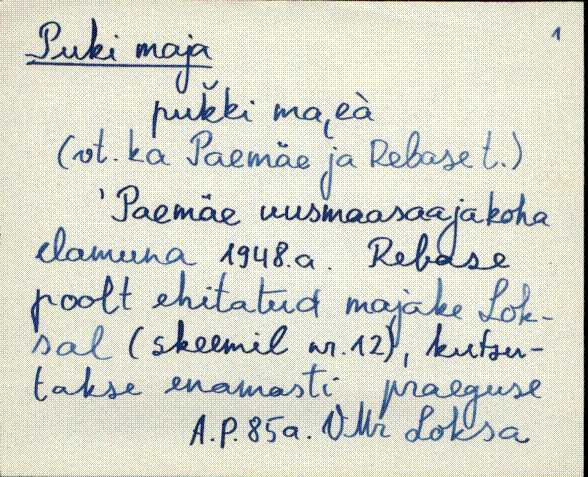 1
Puki maja
puk̆ki ma,eà
(vt. ka Paemäe ja Rebase t.)
'Paemäe uusmaasaajakoha
elamuna 1948.a. Rebase
poolt ehitatud majake Lok-
sal (skeemil nr.12), kutsu-
takse enamasti praeguse
A.P. 85a. VMr Loksa